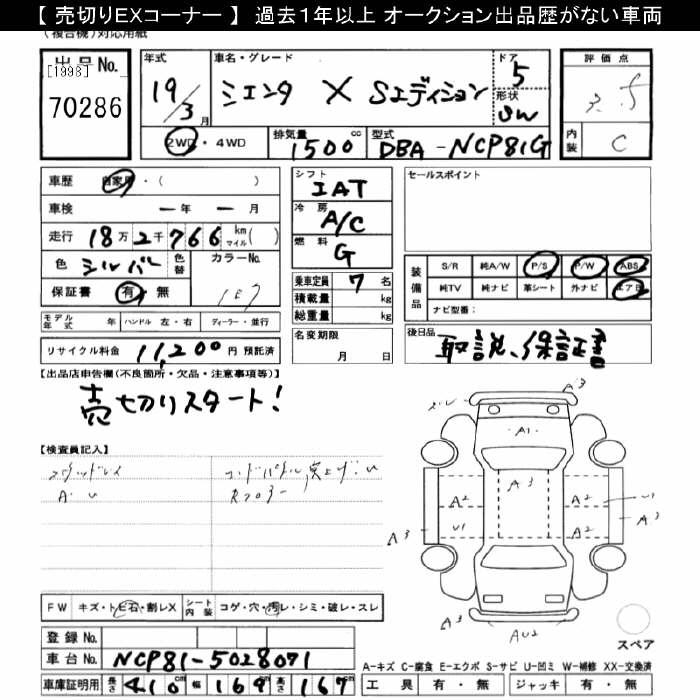 【 売切りEXコーナー 】 過去1年以上 オークション出品歴がない車両
(複合機)対応用紙
出品No.
[1998]
70286
年式
19/3月
車名・グレード
シエンタ X Sエディション
ドア
5
形状
SW
評価点
3.5
内装
C
2WD・4WD
排気量
1500cc
型式
DBA-NCP81G
車歴 自家用・( )
車検 ー年ー月
走行 18万2千766 km マイル( )
色 シルバー 色替
カラーNo.
1E7
保証書 有・無
モデル年式 年 ハンドル 左・右 ディーラー・並行
リサイクル料金 11,200円 預託済
シフト
IAT
冷房
A/C
燃料
G
乗車定員 7名
積載量 kg
総重量 kg
名変期限
月 日
セールスポイント
装備品
S/R 純A/W P/S P/W ABS
純TV 純ナビ 革シート 外ナビ エアB
ナビ型番:
後日品
取説、保証書
【出品店申告欄(不良箇所・欠品・注意事項等)】
売切りスタート!
【検査員記入】
スタッドレス
A・U
A3
A1
A3
A2 A2 U1
A3 U1 A2 A3
A3
AU2
A3
スペア
FW キズ・トビ石・割レX シート内装 コゲ・穴・汚レ・シミ・破レ・スレ
登録No.
車台No. NCP81-5028071
車庫証明用 長さ 410cm 幅 169cm 高さ 167cm
A-キズ C-腐食 E-エクボ S-サビ U-凹ミ W-補修 XX-交換済
工具 有・無 ジャッキ 有・無